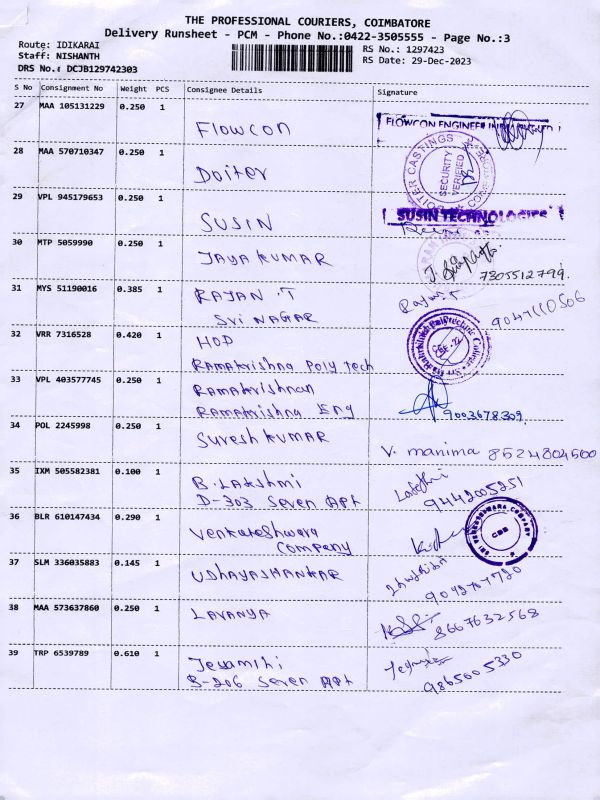 THE PROFESSIONAL COURIERS, COIMBATORE
Delivery Runsheet - PCM - Phone No.:0422-3505555 - Page No.:3
Route: IDIKARAI
RS No.: 1297423
Staff: NISHANTH
RS Date: 29-Dec-2023
DRS No.: DCJB129742303
S No Consignment No Weight PCS Consignee Details Signature
27 MAA 105131229 0.250 1
Flowcon
FLOWCON ENGINEER
28 MAA 570710347 0.250 1
Doiter
DOITER CASTINGS
SECURITY
VERIFIED
29 VPL 945179653 0.250 1
SUSIN
SUSIN TECHNOLOGIES
30 MTP 5059990 0.250 1
JAYA KUMAR
7305512799.
31 MYS 51190016 0.385 1
RAJAN .T
Sri NAGAR
32 VRR 7316528 0.420 1
HOD
Ramakrishna Poly tech
33 VPL 403577745 0.250 1
Ramakrishnan
Ramakrishna Eng
9003678309.
34 POL 2245998 0.250 1
Suresh KUMAR
V. manima 8524804500
35 IXM 505582381 0.100 1
B. Lakshmi
D-303 Seven APt
9442005251
36 BLR 610147434 0.290 1
Venkateshwara
Company
37 SLM 336035883 0.145 1
UDhayaShankar
38 MAA 573637860 0.250 1
LAVANYA
8667632568
39 TRP 6539789 0.610 1
B-206 Seven APt
9865005330